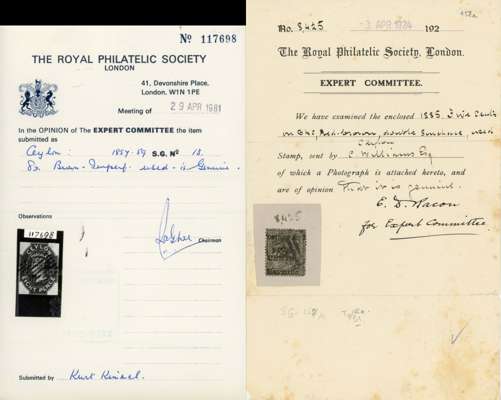 Nº 117698
THE ROYAL PHILATELIC SOCIETY
LONDON
41, Devonshire Place,
London, W1N 1PE
Meeting of 29 APR 1981
In the OPINION of The EXPERT COMMITTEE the item
submitted as
Ceylon: 1857-59 S.G. Nº 13.
8d Brown - Imperf. used - is Genuine.
Observations
117698
CEYLON
Chairman
Submitted by Kurt
No. 8,425 3 APR 1924 192
The Royal Philatelic Society, London.
EXPERT COMMITTEE.
We have examined the enclosed 1885. Five Cents
on 24c, double surcharge, used
Ceylon
Stamp, sent by C Williams Esq
of which a Photograph is attached hereto, and
are of opinion that it is genuine.
E. D. Bacon
for Expert Committee
8,425